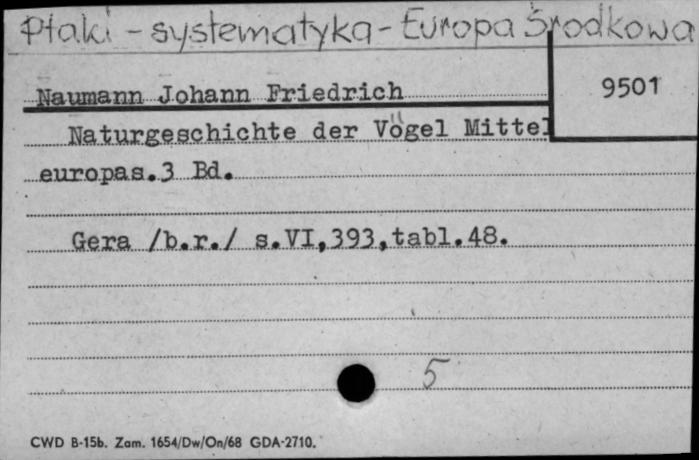 Ptaki - systematyka - Europa Środkowa
9501
Naumann Johann Friedrich
Naturgeschichte der Vögel Mittel
europas.3 Bd.
Gera /b.r./ s.VI,393,tabl.48.
5
CWD B-15b. Zam. 1654/Dw/On/68 GDA-2710.